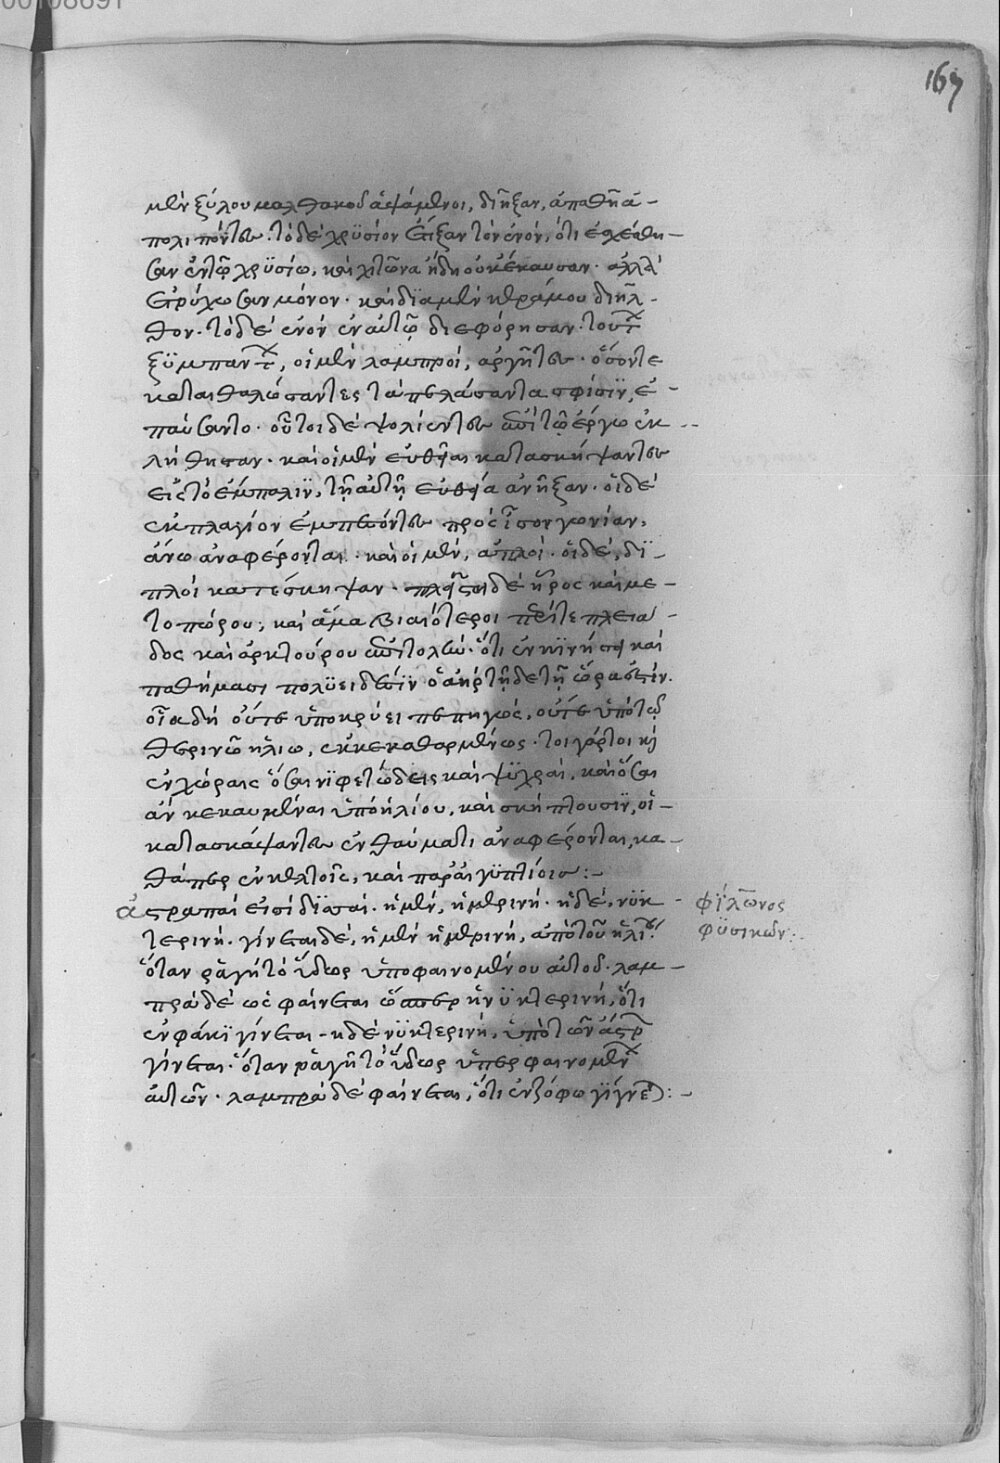 167
μὲν ξύλου μαλθακοῦ ἁψάμενοι, διῆξαν, ἀπαθῆ ἀ-
πολιπόντες. τὸ δὲ χρϋσίον ἔτιξαν τὸν ἐνόν, ὅτι ἐχέθη-
σαν ἐν τῷ χρϋσίω, καὶ χιτῶνα ἤδη οὐκ ἔκαυσαν. ἀλλὰ
ἐτρύχωσαν μόνον. καὶ διὰ μὲν κεράμου διῆλ-
θον. τὸ δὲ ἐνὸν ἐν αὐτῷ διεφόρησαν. τούτ
ξϋμπαντ, οἱ μὲν λαμπροί, ἀργῆτες. ὅσον τε
καταιθαλώσαντες τὰ πελάσαντα σφίσϊν, ἐ-
παύσαντο. οὗτοι δὲ ψολόεντες ἐπὶ τῷ ἔργω ἐκ-
λήθησαν. καὶ οἱ μὲν εὐθεῖαι κατασκήψαντες
εἰς τὸ ἔμπαλιν, τῇ αὐτῇ εὐθεία ἀνῆξαν. οἱ δὲ
ἐκ πλαγίου ἐμπεσόντες πρὸς ἴσον γωνίαν,
ἄνω ἀναφέρονται. καὶ οἱ μὲν, ἁπλοί. οἱ δέ, δϊ-
πλοί κατέσκηψαν. πλεῖστοι δὲ ἦρος καὶ με-
τοπώρου, καὶ ἅμα βιαιότεροι περί τε πλεια-
δος καὶ ἀρκτούρου ἐπιτολὴν. ὅτι ἐν κϊνήσει καὶ
παθήμασι πολϋειδέσϊν ὁ ἀὴρ τῇδε τῇ ὥρα ἐστίν.
οἷα δὴ οὔτε ὑπὸ κρύει πεπηγώς, οὔτε ὑπὸ τῷ
θερινῷ ἡλίω, ἐκκεκαθαρμένως. τοιγάρτοι κὴ
ἐν χώραις ὅσαι νϊφετώδεις καὶ ψϋχραὶ, καὶ ὅσαι
αὖ κεκαυμέναι ὑπὸ ἡλίου, καὶ σκήπτουσιν, οἱ-
κατασκάψαντες ἐν θαύματι ἀναφέρονται, κα-
θάπερ ἐν κελτοῖς, καὶ παρ᾽ αἰγϋπτίοις :-
ἀστραπαὶ εἰσὶ διτταί. ἡ μὲν, ἡμερινή. ἡ δὲ, νϋκ-
τερινή. γίνεται δὲ, ἡ μὲν ἡμερινή, ἀπὸ τοῦ ἡλίου.
ὅταν ῥαγῇ τὸ ὕδωρ ὑποφαινομένου αὐτοῦ. λαμ-
πρὰ δὲ ὡς φαίνεται ὥσπερ ἡ νϋκτερινή, ὅτι
ἐν φάκϊ γίνεται. ἡ δὲ νϋκτερινή, ὑπὸ τῶν ἀστρ
γίνεται. ὅταν ῥαγῇ τὸ ὕδωρ ὑπερφαινομέν
αὐτῶν. λαμπρὰ δὲ φαίνεται, ὅτι ἐν ζόφω γίγνεται :-
φϊλωνος
φϋσικῶν :